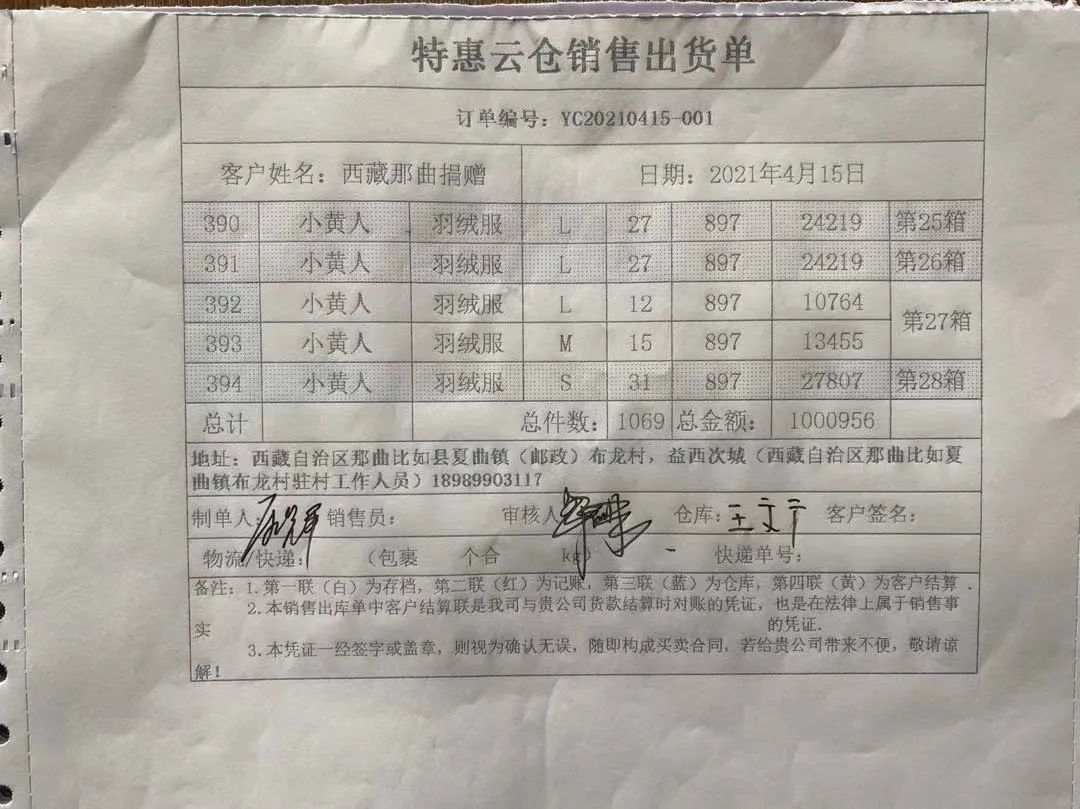 特惠云仓销售出货单
订单编号：YC20210415-001
客户姓名：西藏那曲捐赠 日期：2021年4月15日
390 小黄人 羽绒服 L 27 897 24219 第25箱
391 小黄人 羽绒服 L 27 897 24219 第26箱
392 小黄人 羽绒服 L 12 897 10764 第27箱
393 小黄人 羽绒服 M 15 897 13455
394 小黄人 羽绒服 S 31 897 27807 第28箱
总计 总件数：1069 总金额：1000956
地址：西藏自治区那曲比如县夏曲镇（邮政）布龙村，益西次城（西藏自治区那曲比如夏
曲镇布龙村驻村工作人员）18989903117
制单人： 销售员： 审核人 仓库： 客户签名：
物流/快递： （包裹 个合 kg） 快递单号：
备注：1.第一联（白）为存档，第二联（红）为记账，第三联（蓝）为仓库，第四联（黄）为客户结算．
2.本销售出库单中客户结算联是我司与贵公司货款结算时对账的凭证，也是在法律上属于销售事
实 的凭证．
3.本凭证一经签字或盖章，则视为确认无误，随即构成买卖合同，若给贵公司带来不便，敬请谅
解！